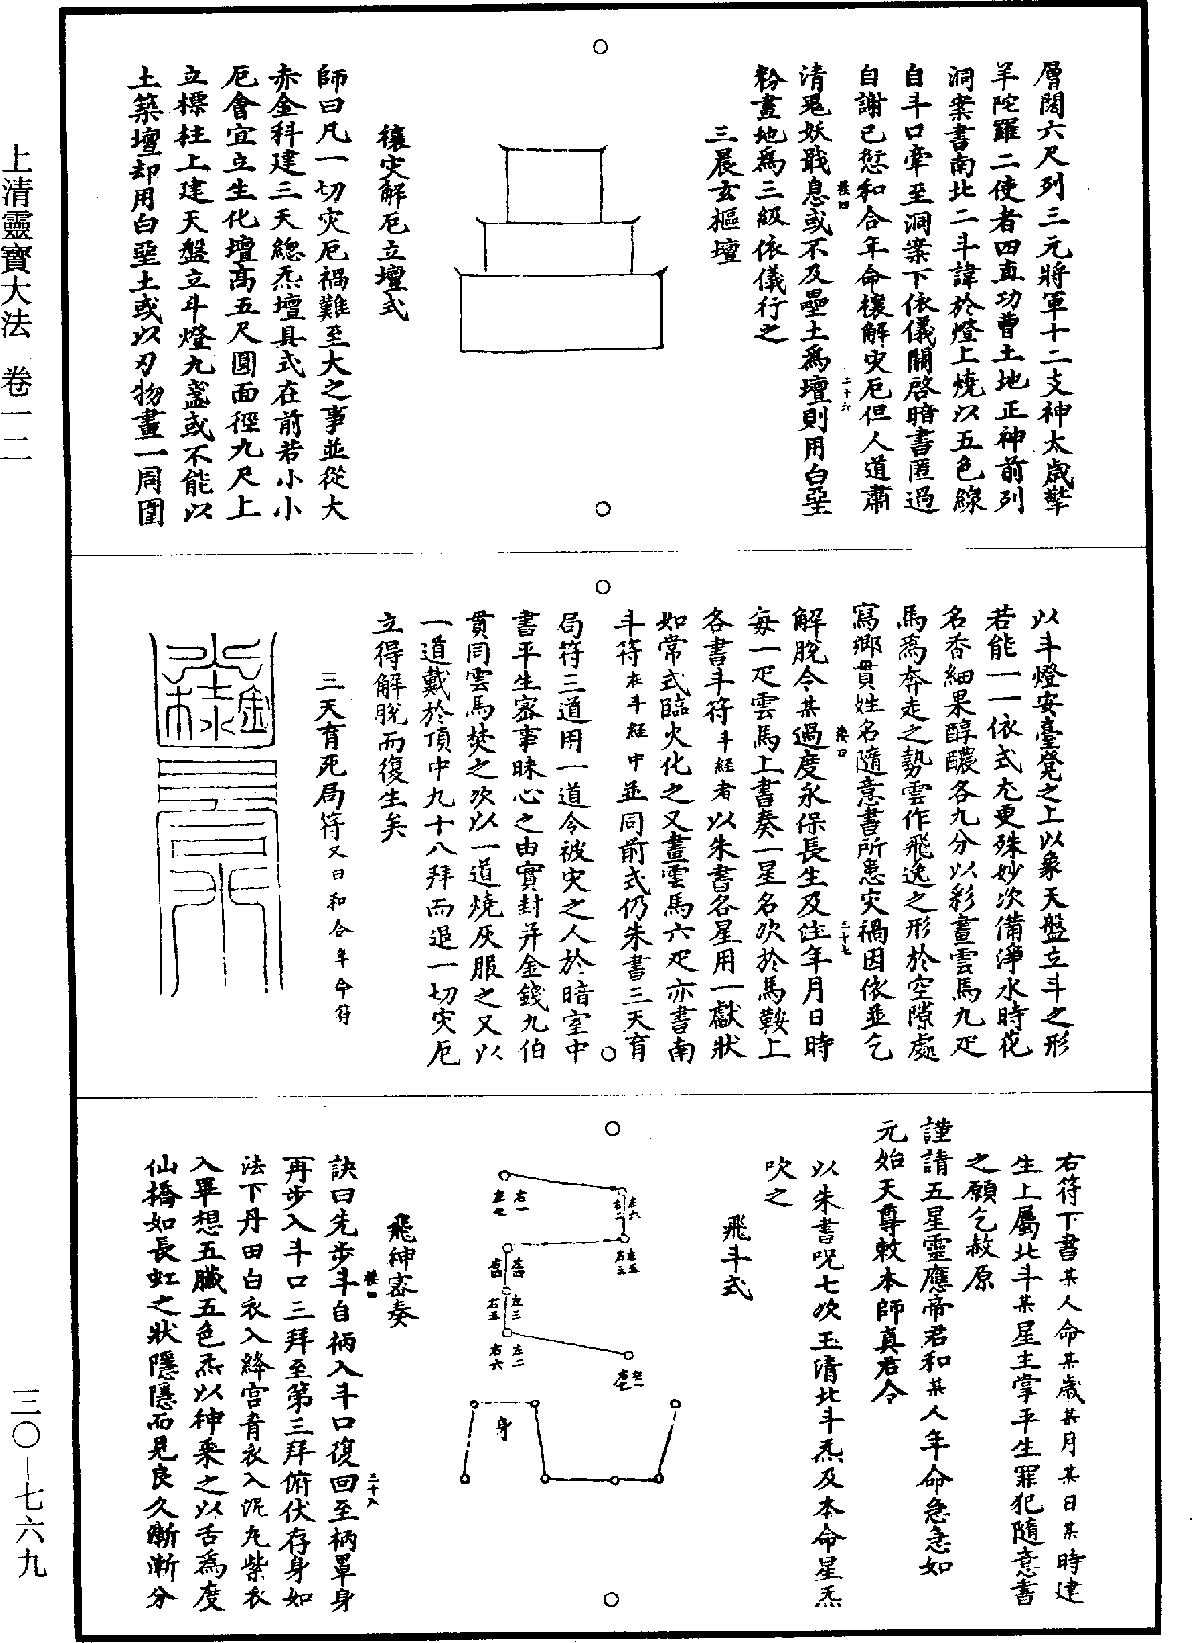 上清靈寶大法 卷一二
三〇—七六九
層闊六尺列三元將軍十二支神太歲擎
羊陀羅二使者四直功曹土地正神前列
洞案書南北二斗諱於燈上燒以五色線
自斗口牽至洞案下依儀關啓暗書匿過
自謝已愆和合年命禳解灾厄但人道肅
清鬼妖戢息或不及壘土爲壇則用白堊
粉畫地爲三級依儀行之
三晨玄樞壇
禳灾解厄立壇式
師曰凡一切灾厄禍難至大之事並從大
赤金科建三天總炁壇具式在前若小小
厄會宜立生化壇高五尺圓面徑九尺上
立標柱上建天盤立斗燈九盞或不能以
土築壇却用白堊土或以刃物畫一周圍
以斗燈安臺凳之上以象天盤立斗之形
若能一一依式尤更殊妙次備淨水時花
名香細果醇醲各九分以彩畫雲馬九疋
馬爲奔走之勢雲作飛逸之形於空隙處
寫鄉貫姓名隨意書所患灾禍因依並乞
解脫令某過度永保長生及注年月日時
每一疋雲馬上書奏一星名次於馬鞍上
各書斗符斗經者以朱書各星用一獻狀
如常式臨火化之又畫雲馬六疋亦書南
斗符在斗經中並同前式仍朱書三天育
局符三道用一道令被灾之人於暗室中
書平生密事昧心之由實封幷金錢九伯
貫同雲馬焚之次以一道燒灰服之又以
一道戴於頂中九十八拜而退一切灾厄
立得解脫而復生矣
三天育死局符又曰和合年命符
右符下書某人命某歲某月某日某時建
生上屬北斗某星主掌平生罪犯隨意書
之願乞赦原
謹請五星靈應帝君和某人年命急急如
元始天尊敕本師真君令
以朱書呪七次玉清北斗炁及本命星炁
吹之
飛斗式
右一
左七
左六
右二
左五
右三
左四
右四
左三
右五
左二
右六
左一
右七
身
飛神密奏
訣曰先步斗自柄入斗口復回至柄罩身
再步入斗口三拜至第三拜俯伏存身如
法下丹田白衣入絳宮青衣入泥丸紫衣
入畢想五臟五色炁以神乘之以舌爲度
仙橋如長虹之狀隱隱而見良久漸漸分